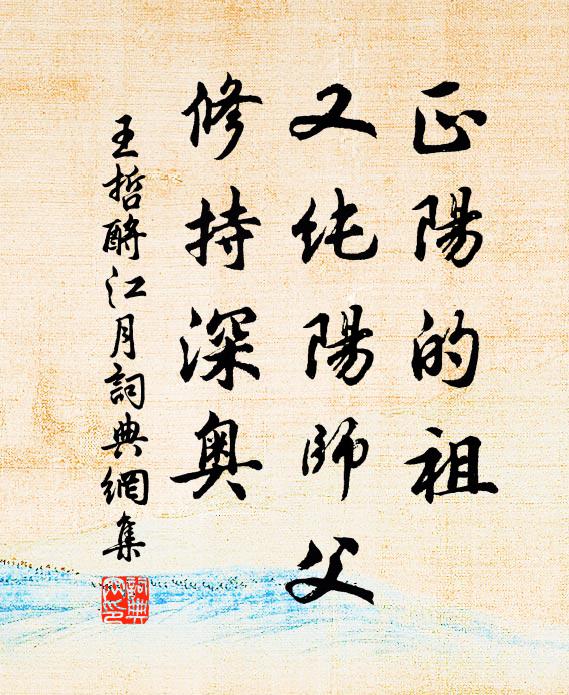 正陽的祖
又純陽師父
修持深奧
王哲酹江月詞典網集